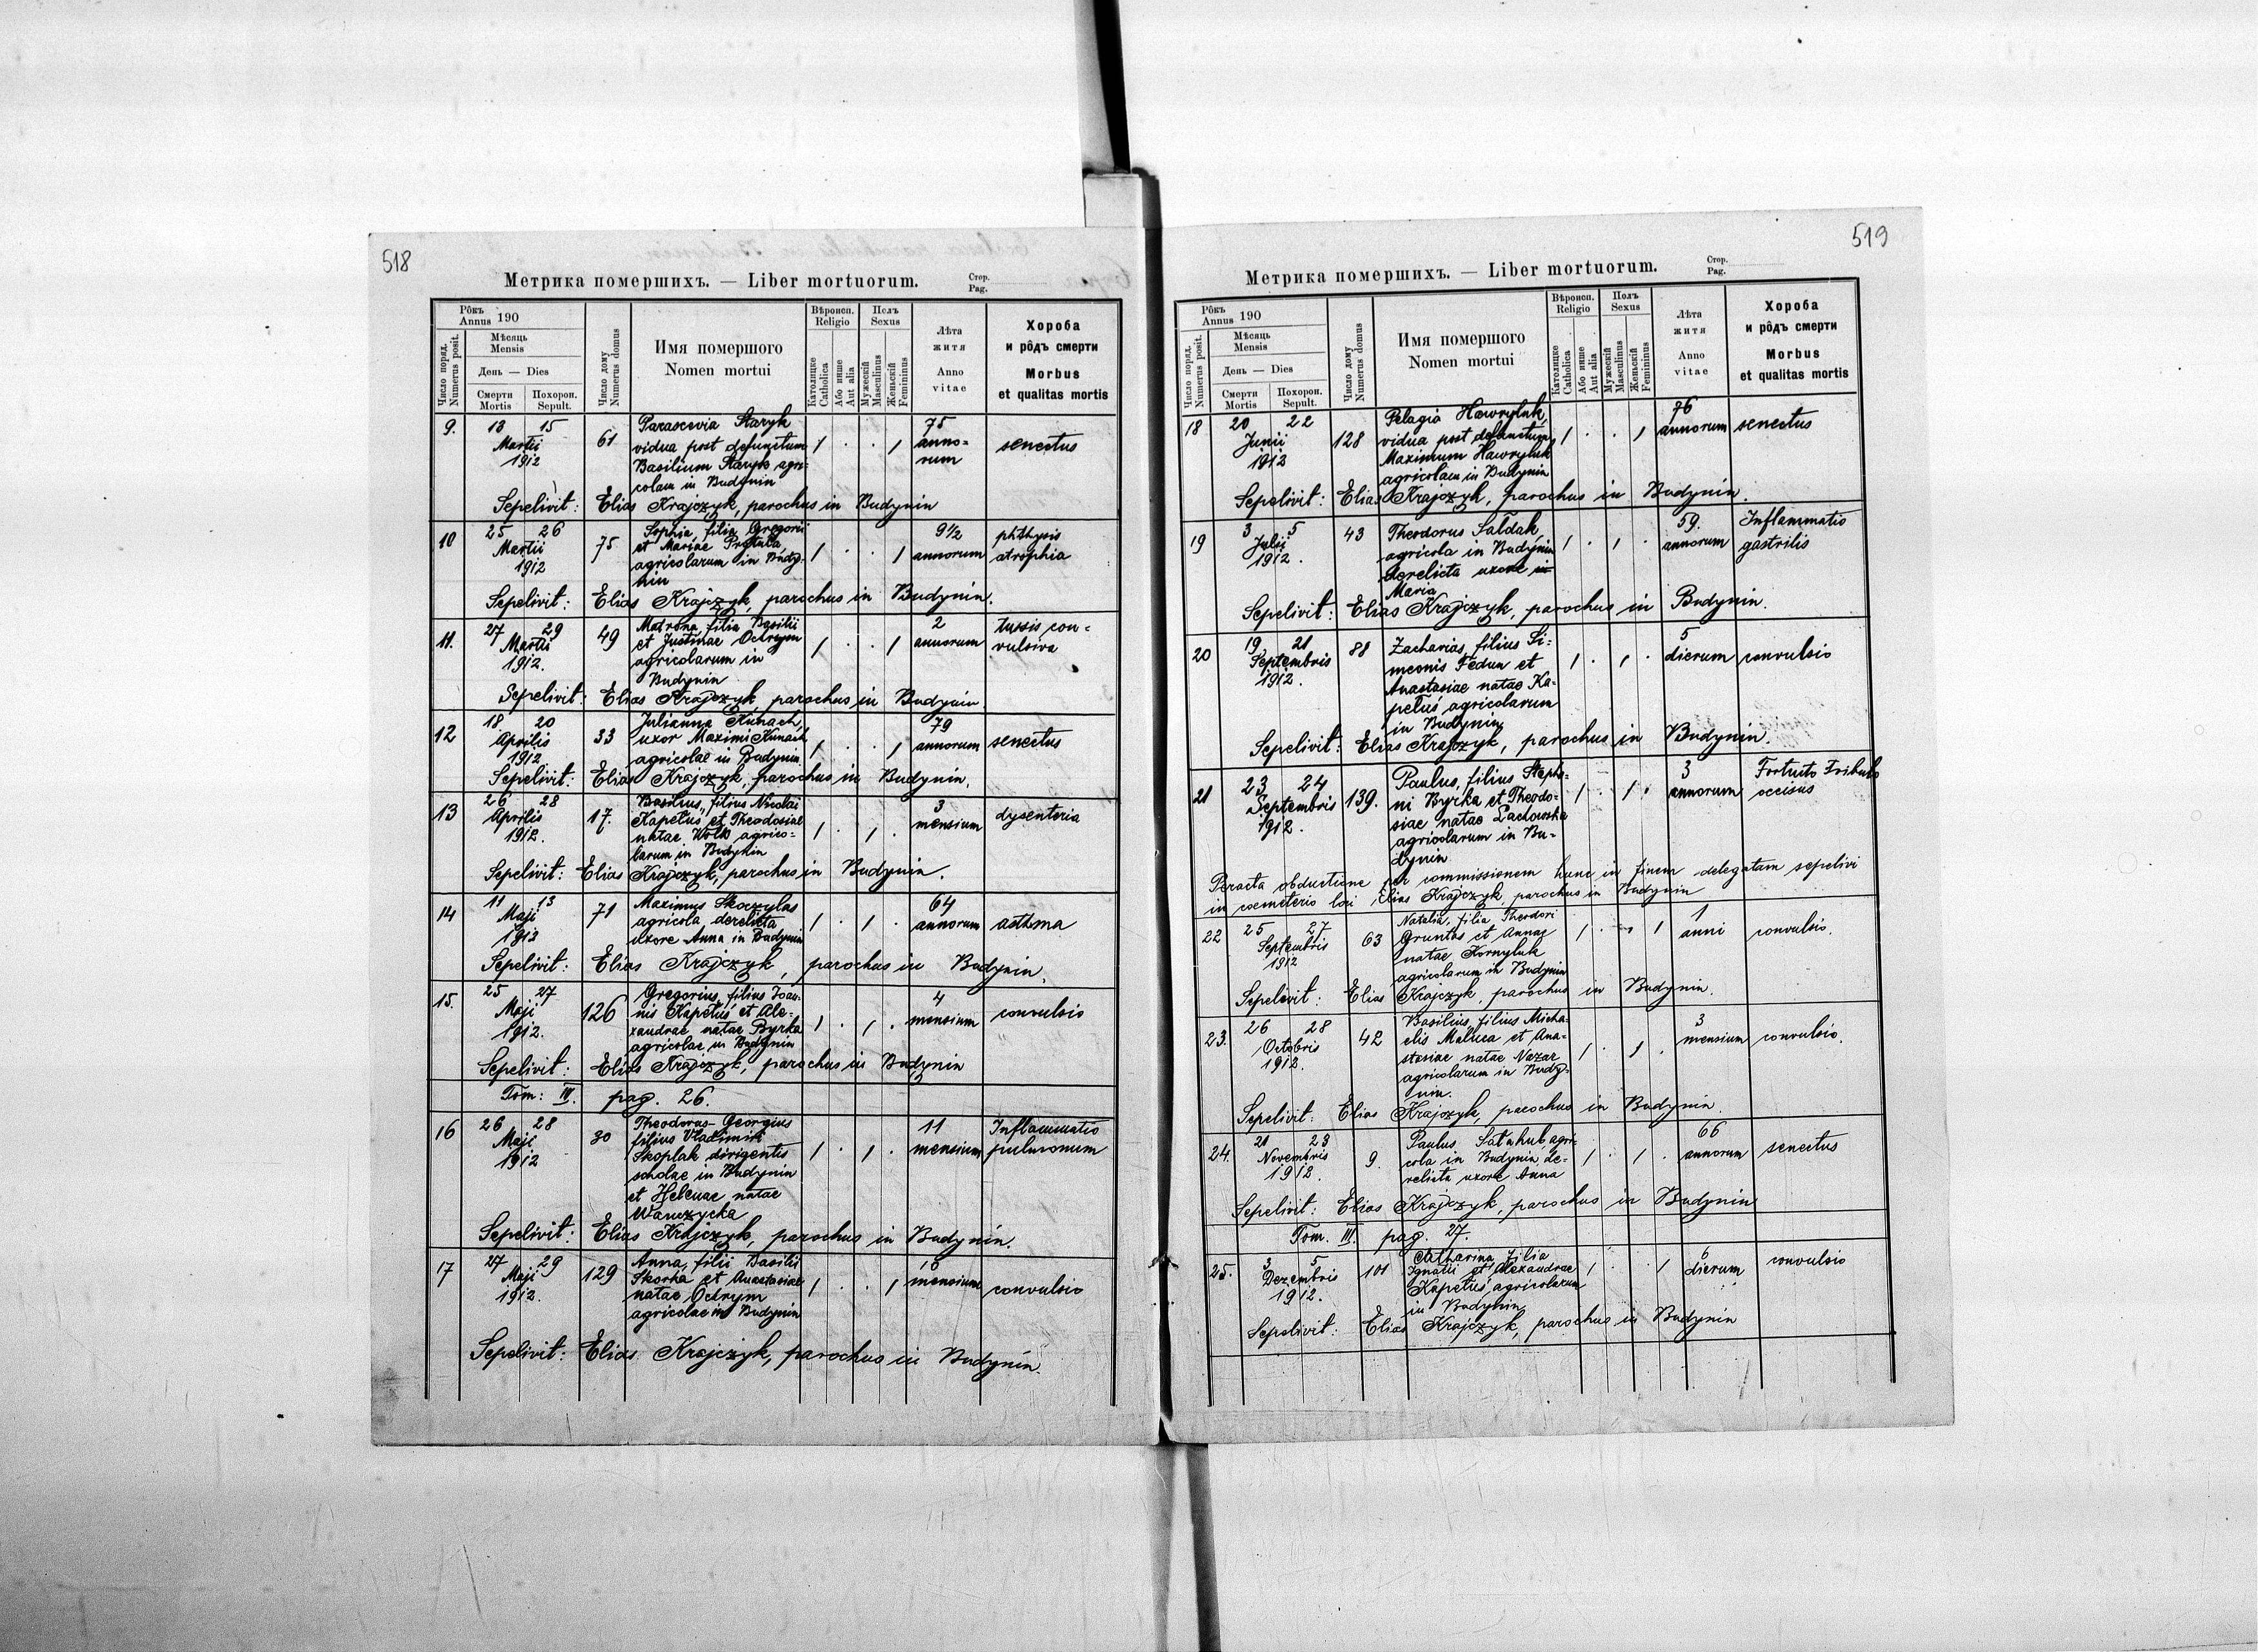 518
Метрика помершихъ. — Liber mortuorum.
Стор.
Pag.
Рôкъ
Annus 190
Мѣсяць
Mensis
День — Dies
Смерти
Mortis
Похорон.
Sepult.
Число поряд.
Numerus posit.
Число дому
Numerus domus
Имя помершого
Nomen mortui
Вѣроисп.
Religio
Католицке
Catholica
Або инше
Aut alia
Полъ
Sexus
Мужескій
Masculinus
Женьскій
Femininus
Лѣта
житя
Anno
vitae
Хороба
и рôдъ смерти
Morbus
et qualitas mortis
9. 13 15 Martii 1912 61 Parascevia Staryk 75
vidua post defunctum anno= senectus
Basilium Staryk agri= rum
colam in Budynin
Sepelivit: Elias Krajczyk, parochus in Budynin
10 25 26 Martii 1912 75 Sophia, filia Gregorii 9½ phthysis
et Mariae annorum atrophia
agricolarum in Budy-
nin
Sepelivit: Elias Krajczyk, parochus in Budynin.
11. 27 29 Martii 1912. 49 Matrona, filia Basilii 2 tussis con=
et Justinae Ostrym annorum vulsiva
agricolarum in
Budynin
Sepelivit: Elias Krajczyk, parochus in Budynin.
12 18 20 Aprilis 1912 33 Julianna Kunach, 79
uxor Maximi Kunach annorum senectus
agricolae in Budynin
Sepelivit: Elias Krajczyk, parochus in Budynin.
13 26 28 Aprilis 1912. 17. Basilius, filius Nicolai 3 dysenteria
Kapeluś et Theodosiae mensium
natae Wolk agrico=
larum in Budynin
Sepelivit: Elias Krajczyk, parochus in Budynin.
14 11 13 Maji 1912 71 Maximus Skoczylas 64
agricola derelicta annorum asthma
uxore Anna in Budynin
Sepelivit: Elias Krajczyk, parochus in Budynin.
15. 25 27 Maji 1912. 126 Gregorius, filius Joan- 4
nis Kapeluś et Ale- mensium convulsio
xandrae natae Byrka
agricolae in Budynin
Sepelivit: Elias Krajczyk, parochus in Budynin
Tom: III. pag. 26.
16 26 28 Maji 1912 30 Theodorus-Georgius 11 Inflammatio
filius Vladimiri mensium pulmonum
Skoplak dirigentis
scholae in Budynin
et Helenae natae
Wanczycka
Sepelivit: Elias Krajczyk, parochus in Budynin.
17 27 29 Maji 1912. 129 Anna, filii Basilii
Skorka et Anastasiae mensium convulsio
natae Ostrym
agricolae in Budynin
Sepelivit: Elias Krajczyk, parochus in Budynin.
519
Метрика помершихъ. — Liber mortuorum.
Стор.
Pag.
Рôкъ
Annus 190
Мѣсяць
Mensis
День — Dies
Смерти
Mortis
Похорон.
Sepult.
Число поряд.
Numerus posit.
Число дому
Numerus domus
Имя помершого
Nomen mortui
Вѣроисп.
Religio
Католицке
Catholica
Або инше
Aut alia
Полъ
Sexus
Мужескій
Masculinus
Женьскій
Femininus
Лѣта
житя
Anno
vitae
Хороба
и рôдъ смерти
Morbus
et qualitas mortis
18 20 22 Junii 1912 128 Pelagia Hawryluk, 76
vidua post defunctum annorum senectus
Maximum Hawryluk
agricolam in Budynin
Sepelivit: Elias Krajczyk, parochus in Budynin.
19 3 5 Julii 1912. 43 Theodorus Sałdak 59. Inflammatio
agricola in Budynin annorum gastrilis
derelicta uxore in
Maria
Sepelivit: Elias Krajczyk, parochus in Budynin.
20 19 21 Septembris 1912. 88 Zacharias, filius Si= 5
meonis Fedun et dierum convulsio
Anastasiae natae Ka-
peluś agricolarum
in Budynin
Sepelivit: Elias Krajczyk, parochus in Budynin.
21 23 24 Septembris 1912. 139. Paulus, filius Stepha- 3 Fortuito
ni Byrka et Theodo= annorum occisus
siae natae Lachowska
agricolarum in Bu-
dynin
Peracta obductione per commissionem hunc in finem delegatam sepelivi
in coemeterio loci Elias Krajczyk, parochus in Budynin
22 25 27 Septembris 1912 63 Natalia, filia Theodori 1
et Annae anni convulsio.
natae Kornyluk
agricolarum in Budynin
Sepelivit: Elias Krajczyk, parochus in Budynin.
23. 26 28 Octobris 1912. 42 Basilius, filius Micha- 3
elis Maluca et Ana- mensium convulsio.
stasiae natae Nazar
agricolarum in Budy-
nin.
Sepelivit: Elias Krajczyk, parochus in Budynin.
24. 21 23 Novembris 1912. 9. Paulus agri- 66
cola in Budynin, de= annorum senectus
relicta uxore Anna
Sepelivit: Elias Krajczyk, parochus in Budynin
Tom. III. pag. 27.
25. 3 5 Dezembris 1912. 101 Catharina, filia 6
Ignatii et Alexandrae dierum convulsio
Kapeluś, agricolarum
in Budynin
Sepelivit: Elias Krajczyk, parochus in Budynin